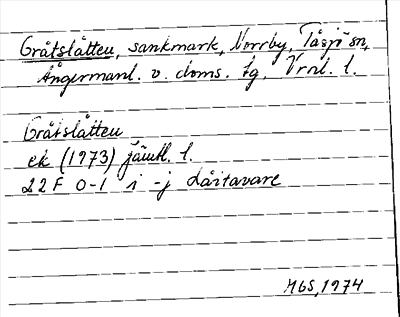 Gråtslåtten, sankmark, Norrby, Tåsjö sn,
Ångermanl. v. doms. tg, Vrnl. l.
Gråtslåtten
ek (1973) jämtl. l.
22 F 0-1 i -j Dåitavare
MbS, 1974